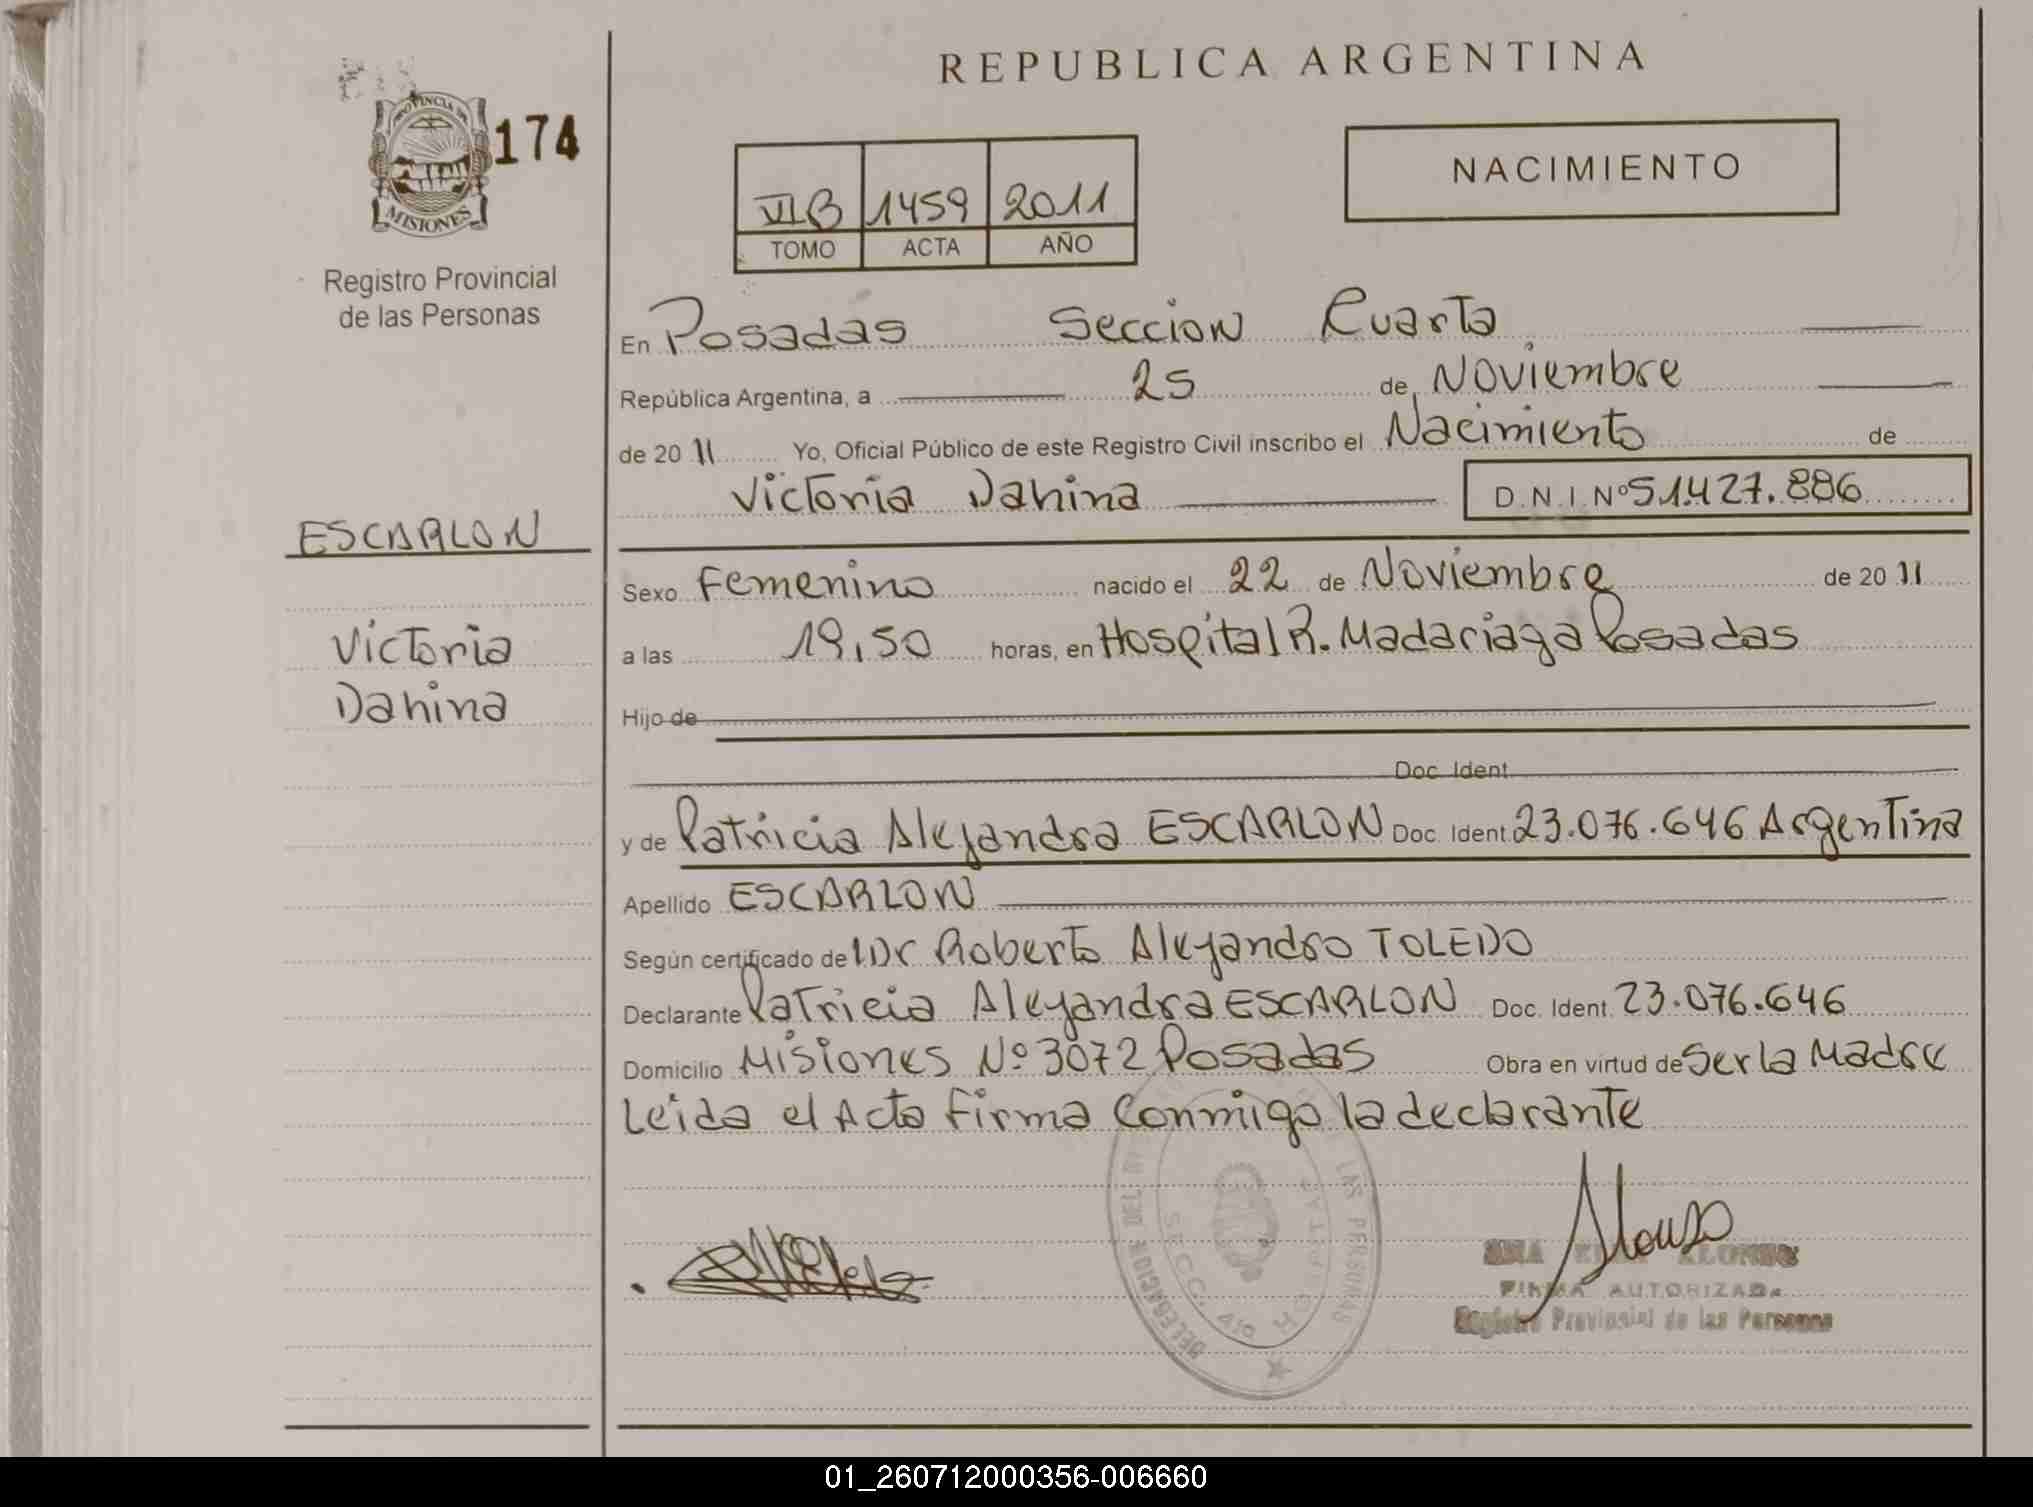 REPUBLICA ARGENTINA
PROVINCIA DE
MISIONES
174
Registro Provincial
de las Personas
VI B 1459 2011
TOMO ACTA AÑO
NACIMIENTO
En Posadas Seccion Cuarta
República Argentina, a 25 de Noviembre
de 20 11 Yo, Oficial Público de este Registro Civil inscribo el Nacimiento de
Victoria Dahina D.N.I. Nº 51.427.886
ESCARLON
Victoria
Dahina
Sexo Femenino nacido el 22 de Noviembre de 20 11
a las 19,50 horas, en Hospital R. Madariaga Posadas
Hijo de
Doc. Ident.
y de Patricia Alejandra ESCARLON Doc. Ident. 23.076.646 Argentina
Apellido ESCARLON
Según certificado de Dr Roberto Alejandro TOLEDO
Declarante Patricia Alejandra ESCARLON Doc. Ident. 23.076.646
Domicilio Misiones Nº 3072 Posadas Obra en virtud de Ser la Madre
Leida el Acta Firma Conmigo la declarante
DELEGACION DEL LAS PERSONAS
SECC. 4ta HOSPITAL
Alonso
ALONSO
FIRMA AUTORIZADA
Registro Provincial de las Personas
01_260712000356-006660